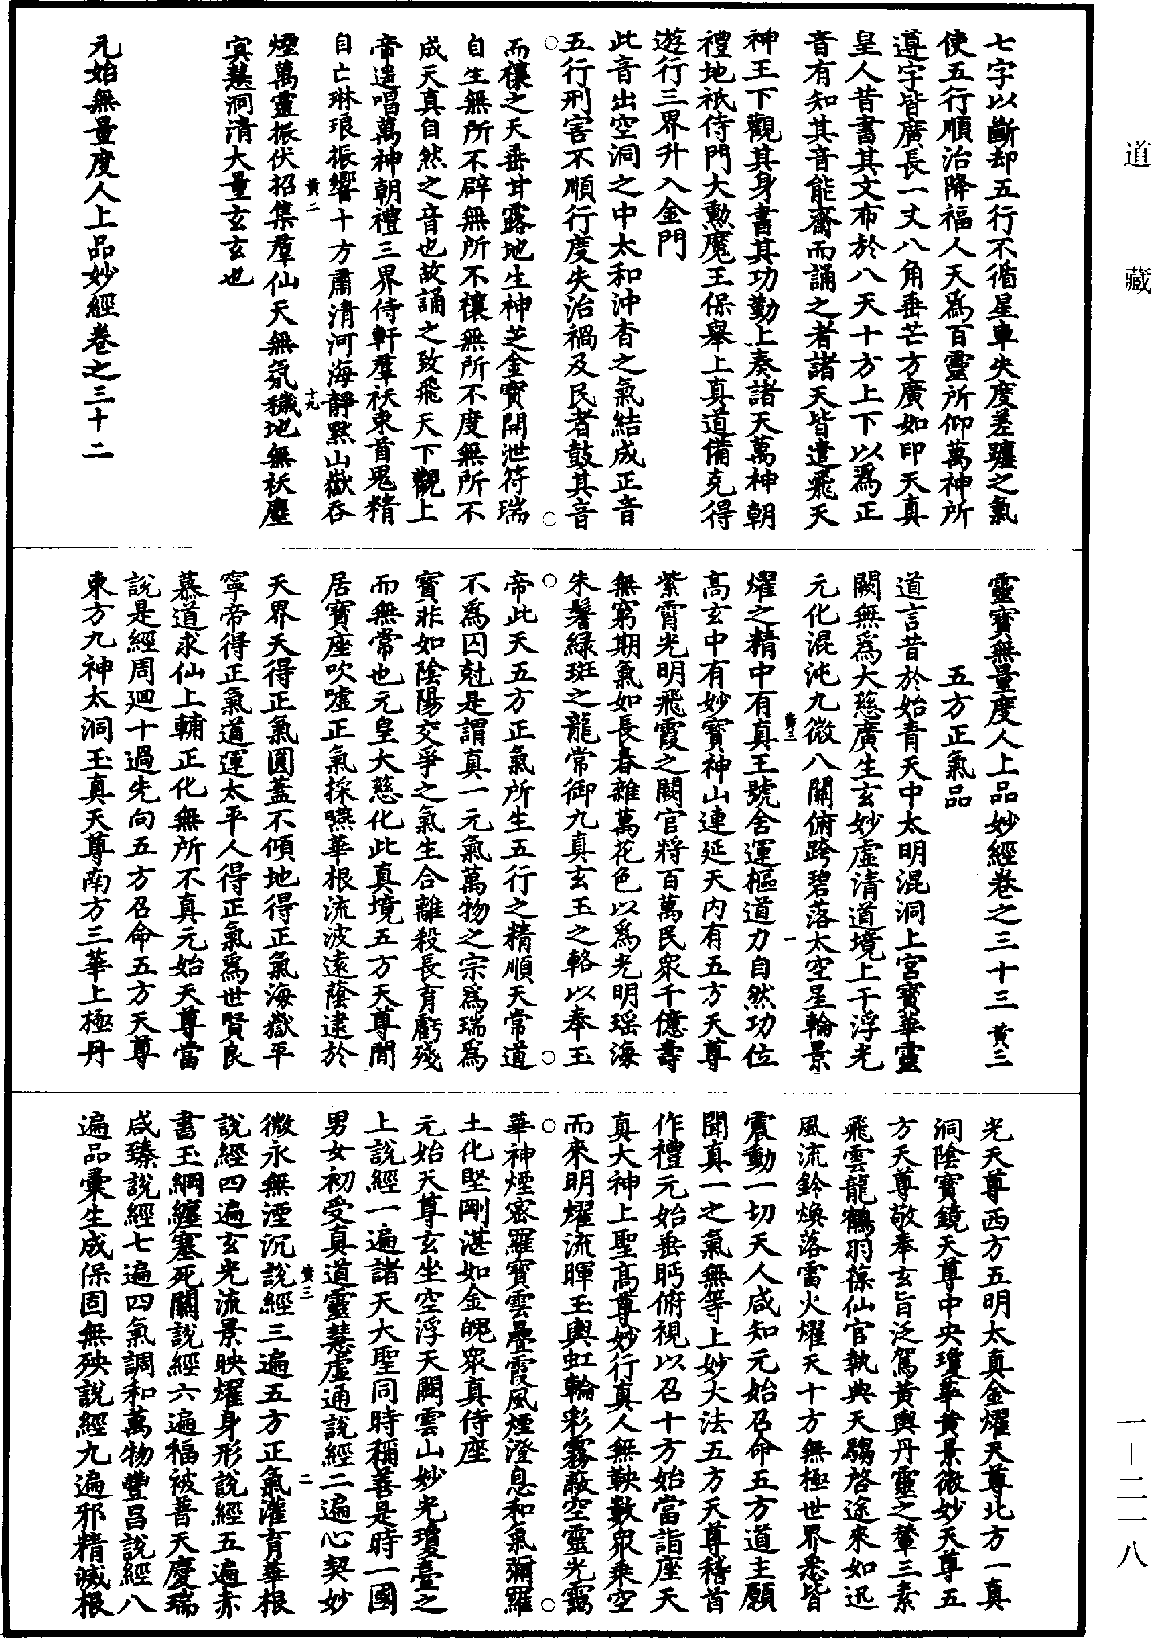 道藏
七字以斷却五行不循星車失度差躔之氣
使五行順治降福人天爲百靈所仰萬神所
遵字皆廣長一丈八角垂芒方廣如印天真
皇人昔書其文布於八天十方上下以爲正
音有知其音能齋而誦之者諸天皆遣飛天
神王下觀其身書其功勤上奏諸天萬神朝
禮地祇侍門大勳魔王保舉上真道備克得
遊行三界升入金門
此音出空洞之中太和沖杳之氣結成正音
五行刑害不順行度失治禍及民者鼓其音
而禳之天垂甘露地生神芝金寶開泄符瑞
自生無所不辟無所不禳無所不度無所不
成天真自然之音也故誦之致飛天下觀上
帝遣唱萬神朝禮三界侍軒羣袄束首鬼精
自亡琳琅振響十方肅清河海靜默山嶽吞
煙萬靈振伏招集羣仙天無氛穢地無袄塵
冥慧洞清大量玄玄也
元始無量度人上品妙經卷之三十二
黃二
十九
靈寶無量度人上品妙經卷之三十三 黃三
五方正氣品
道言昔於始青天中太明混洞上宮寶華靈
闕無爲大慈廣生玄妙虛清道境上干浮光
元化混沌九微八關俯跨碧落太空星輪景
燿之精中有真王號舍運樞道力自然功位
高玄中有妙寶神山連延天內有五方天尊
紫霄光明飛霞之闕官將百萬民衆千億壽
無窮期氣如長春雜萬花色以爲光明瑶海
朱鬐綠斑之龍常御九真玄玉之輅以奉玉
帝此天五方正氣所生五行之精順天常道
不爲囚尅是謂真一元氣萬物之宗爲瑞爲
寶非如陰陽交爭之氣生合離殺長育虧殘
而無常也元皇大慈化此真境五方天尊間
居寶座吹噓正氣採嚥華根流波遠蔭逮於
天界天得正氣圓蓋不傾地得正氣海嶽平
寧帝得正氣道運太平人得正氣爲世賢良
慕道求仙上輔正化無所不真元始天尊當
說是經周迴十過先向五方召命五方天尊
東方九神太洞玉真天尊南方三華上極丹
黃三
一
光天尊西方五明太真金燿天尊北方一真
洞陰寶鏡天尊中央瓊華黃景微妙天尊五
方天尊敬奉玄旨泛駕黃輿丹靈之輦三素
飛雲龍鶴羽葆仙官執典天騶啓途來如迅
風流鈴煥落雷火燿天十方無極世界悉皆
震動一切天人咸知元始召命五方道主願
聞真一之氣無等上妙大法五方天尊稽首
作禮元始垂眄俯視以召十方始當詣座天
真大神上聖高尊妙行真人無鞅數衆乘空
而來明燿流暉玉輿虹輪彩霧蔽空靈光靄
華神煙密羅寶雲疊霞風煙澄息和氣彌羅
土化堅剛湛如金魄衆真侍座
元始天尊玄坐空浮天闕雲山妙光瓊臺之
上說經一遍諸天大聖同時稱善是時一國
男女初受真道靈慧虛通說經二遍心契妙
微永無湮沉說經三遍五方正氣灌育華根
說經四遍玄光流景映燿身形說經五遍赤
書玉綱纏塞死關說經六遍福被普天慶瑞
咸臻說經七遍四氣調和萬物豐昌說經八
遍品彙生成保固無殃說經九遍邪精滅根
黃三
二
一—二一八